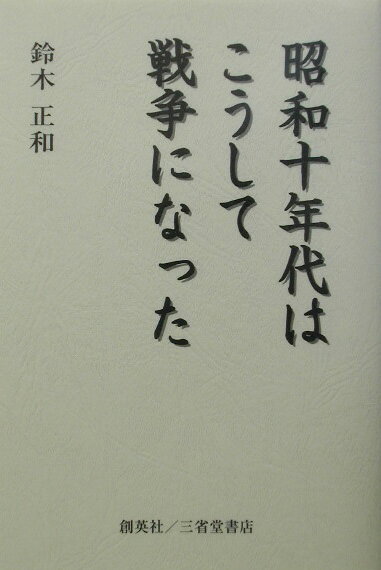 昭和十年代は
こうして
戦争になった
鈴木 正和
創英社／三省堂書店